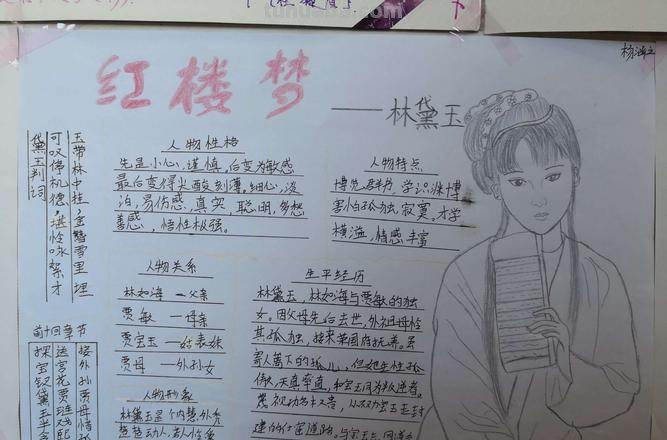 红楼梦
——林黛玉
玉带林中挂,金簪雪里埋
可叹停机德,堪怜咏絮才
黛玉判词
人物性格
先是小心、谨慎,后变为敏感
最后变得尖酸刻薄。细心,淡
泊,易伤感,真实,聪明,多愁
善感,悟性极强。
人物特点
博览群书,学识渊博
孤独,寂寞。才学
横溢,情感丰富
人物关系
林如海 — 父亲
贾敏 — 母亲
贾宝玉 — 姑表妹
贾母 — 外孙女
生平经历
林黛玉,林如海与贾敏的独
女。因父母先后去世,外祖母怜
其孤独,接来荣国府抚养。虽
寄人篱下的孤儿,但她生性孤
傲,天真率直,和宝玉同为叛逆者。
蔑视功名权贵,
建的仕宦道路。与宝玉
前十回章节
接外孙贾母惜孤
送宫花贾琏戏熙
探宝钗黛玉半含
人物形象
林黛玉是个内慧外秀
楚楚动人,